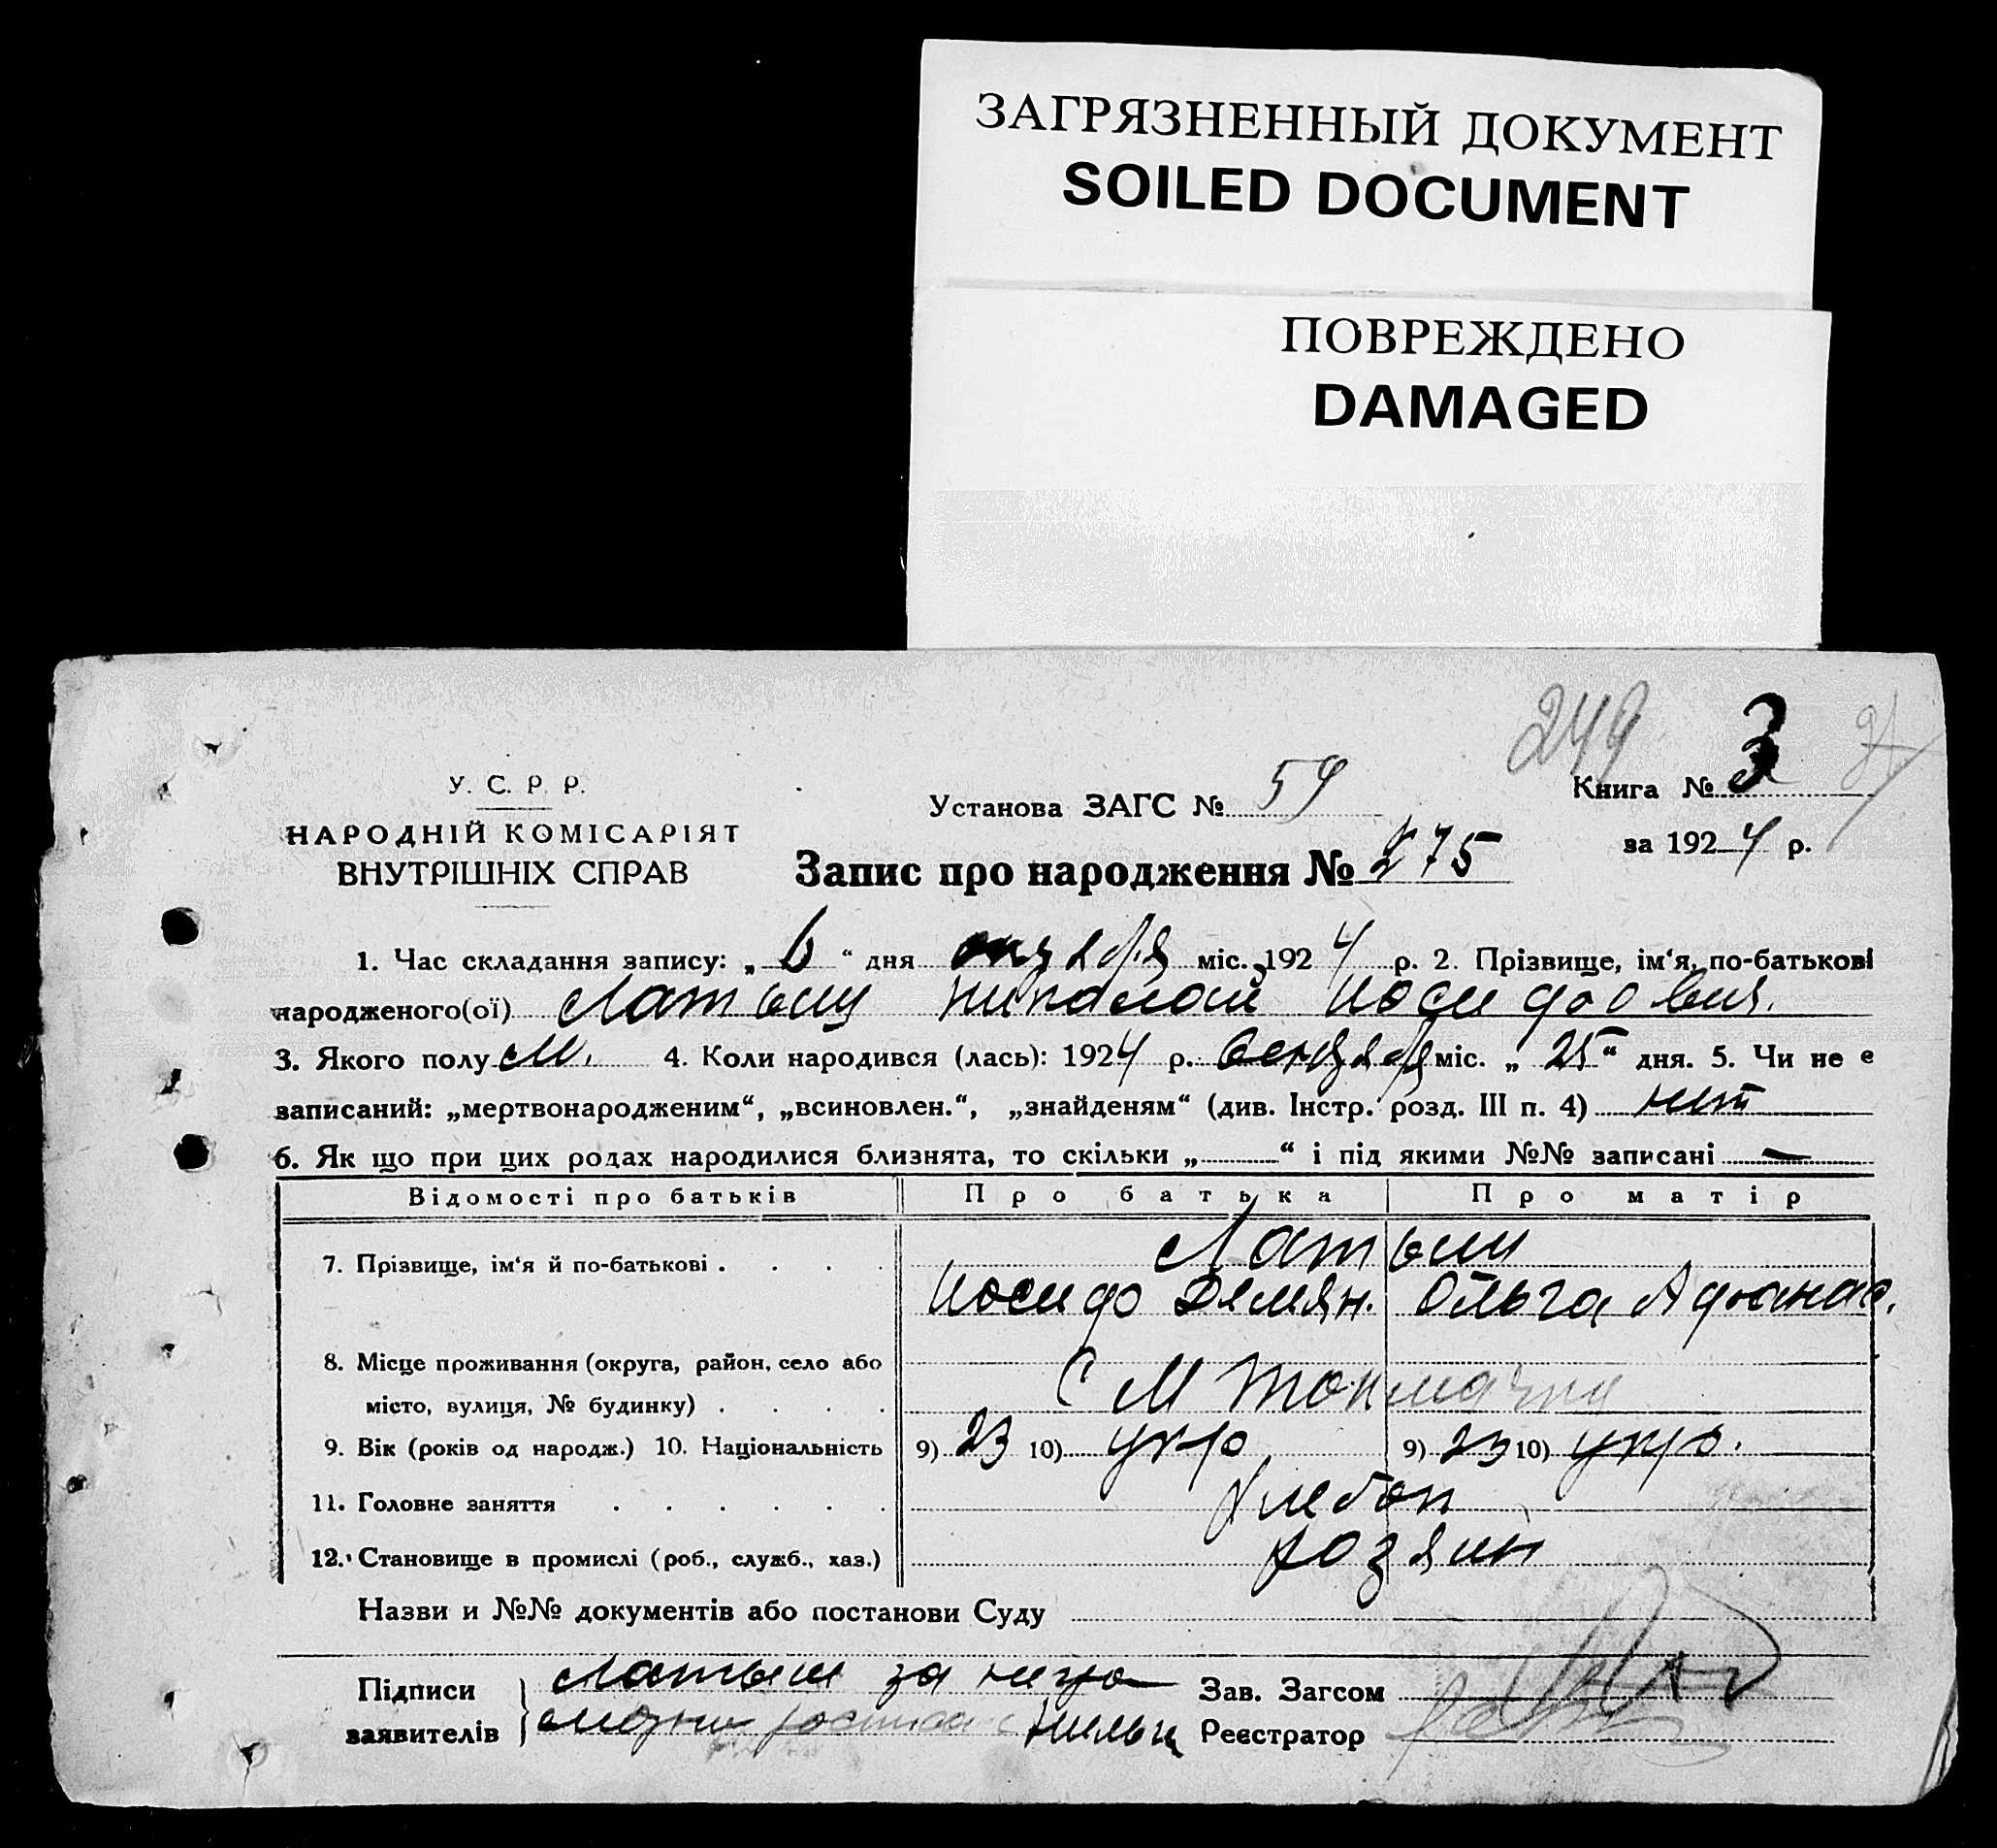 ЗАГРЯЗНЕННЫЙ ДОКУМЕНТ
SOILED DOCUMENT
ПОВРЕЖДЕНО
DAMAGED
249
У. С. Р. Р.
НАРОДНІЙ КОМІСАРІЯТ
ВНУТРІШНІХ СПРАВ
Установа ЗАГС № 59
Книга № 3
за 1924 р.
Запис про народження № 275
1. Час складання запису: „ 6 “ дня октября міс. 1924 р. 2. Прізвище, ім‘я, по-батькові
народженого(ої) Латыш Николай Иосифович.
3. Якого полу м. 4. Коли народився (лась): 1924 р. сентября міс. „ 25 “ дня. 5. Чи не є
записаний: „мертвонародженим“, „всиновлен.“, „знайденям“ (див. Інстр. розд. III п. 4) нет
6. Як що при цих родах народилися близнята, то скільки „ “ і під якими №№ записані —
Відомості про батьків Про батька Про матір
7. Прізвище, ім‘я й по-батькові . . . . Латыш
Иосиф Демян. Ольга Афанас.
8. Місце проживання (округа, район, село або
місто, вулиця, № будинку) . . . . С М Токмачка
9. Вік (років од народж.) 10. Національність 9) 23 10) укр 9) 23 10) укр.
11. Головне заняття . . . . . . хлебоп
12. Становище в промислі (роб., служб., хаз.) хозяин
Назви и №№ документів або постанови Суду
Підписи
заявителів
Латыш за него
Зав. Загсом
Реєстратор